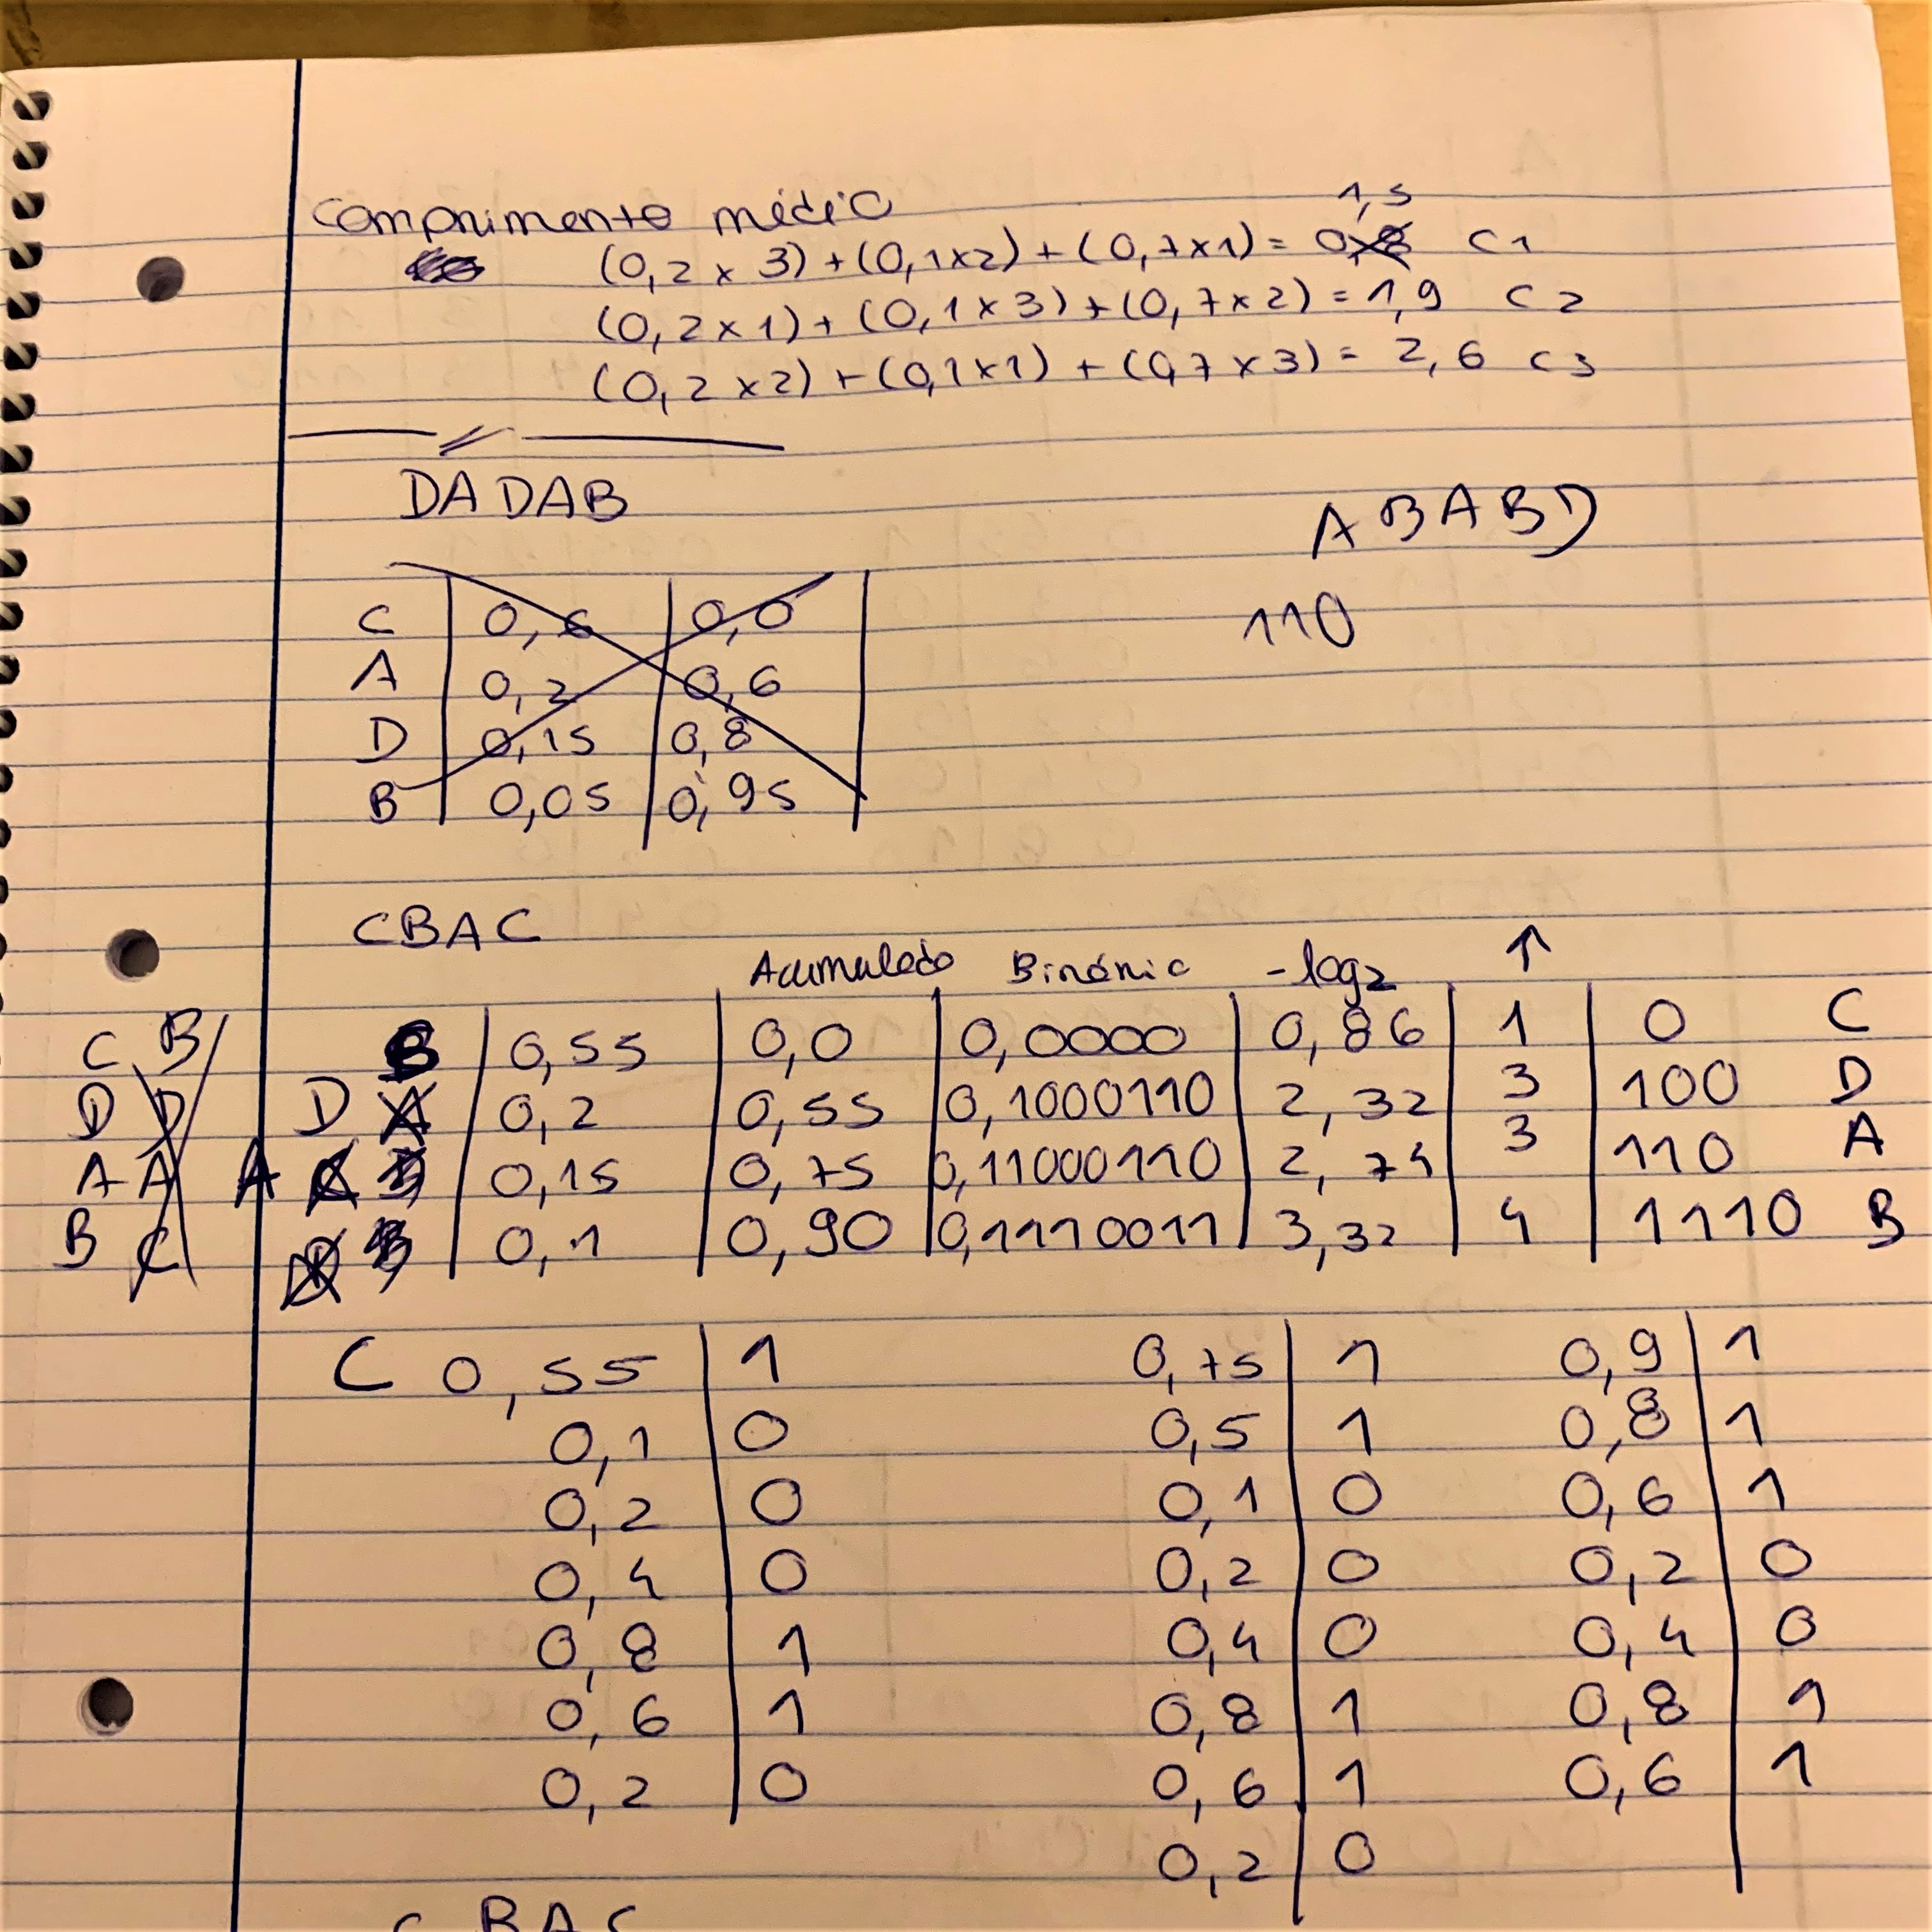 Comprimento médio
1,5
(0,2 x 3) + (0,1x2) + (0,7x1) = 0,8 C1
(0,2 x 1) + (0,1 x 3) + (0,7 x 2) = 1,9 C2
(0,2 x 2) + (0,1x1) + (0,7 x 3) = 2,6 C3
DADAB
ABABD
110
C | 0,6 | 0,0 |
A | 0,2 | 0,6
D | 0,15 | 0,8
B | 0,05 | 0,95
CBAC
Acumulado Binário -log2 ↑
C B B | 0,55 | 0,0 | 0,0000 | 0,86 | 1 | 0 C
D D D A | 0,2 | 0,55 | 0,1000110 | 2,32 | 3 | 100 D
A A A C | 0,15 | 0,75 | 0,11000110 | 2,74 | 3 | 110 A
B C D B | 0,1 | 0,90 | 0,1110011 | 3,32 | 4 | 1110 B
C 0,55 | 1 0,75 | 1 0,9 | 1
0,1 | 0 0,5 | 1 0,8 | 1
0,2 | 0 0,1 | 0 0,6 | 1
0,4 | 0 0,2 | 0 0,2 | 0
0,8 | 1 0,4 | 0 0,4 | 0
0,6 | 1 0,8 | 1 0,8 | 1
0,2 | 0 0,6 | 1 0,6 | 1
0,2 | 0
CBAC